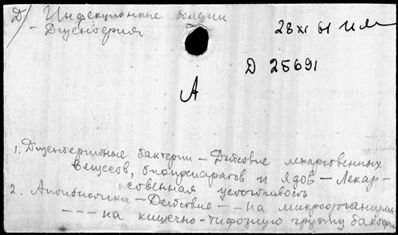 Д) Инфекционные болезни
- Дизентерия
28 XI 61 ИМ
Д 25691
А
1. Дизентерийные бактерии – Действие лекарственных
веществ, биопрепаратов и ядов – Лекар-
ственная устойчивость
2. Антибиотики – Действие – – на микроорганизмы
– – – на кишечно-тифозную группу бактерий